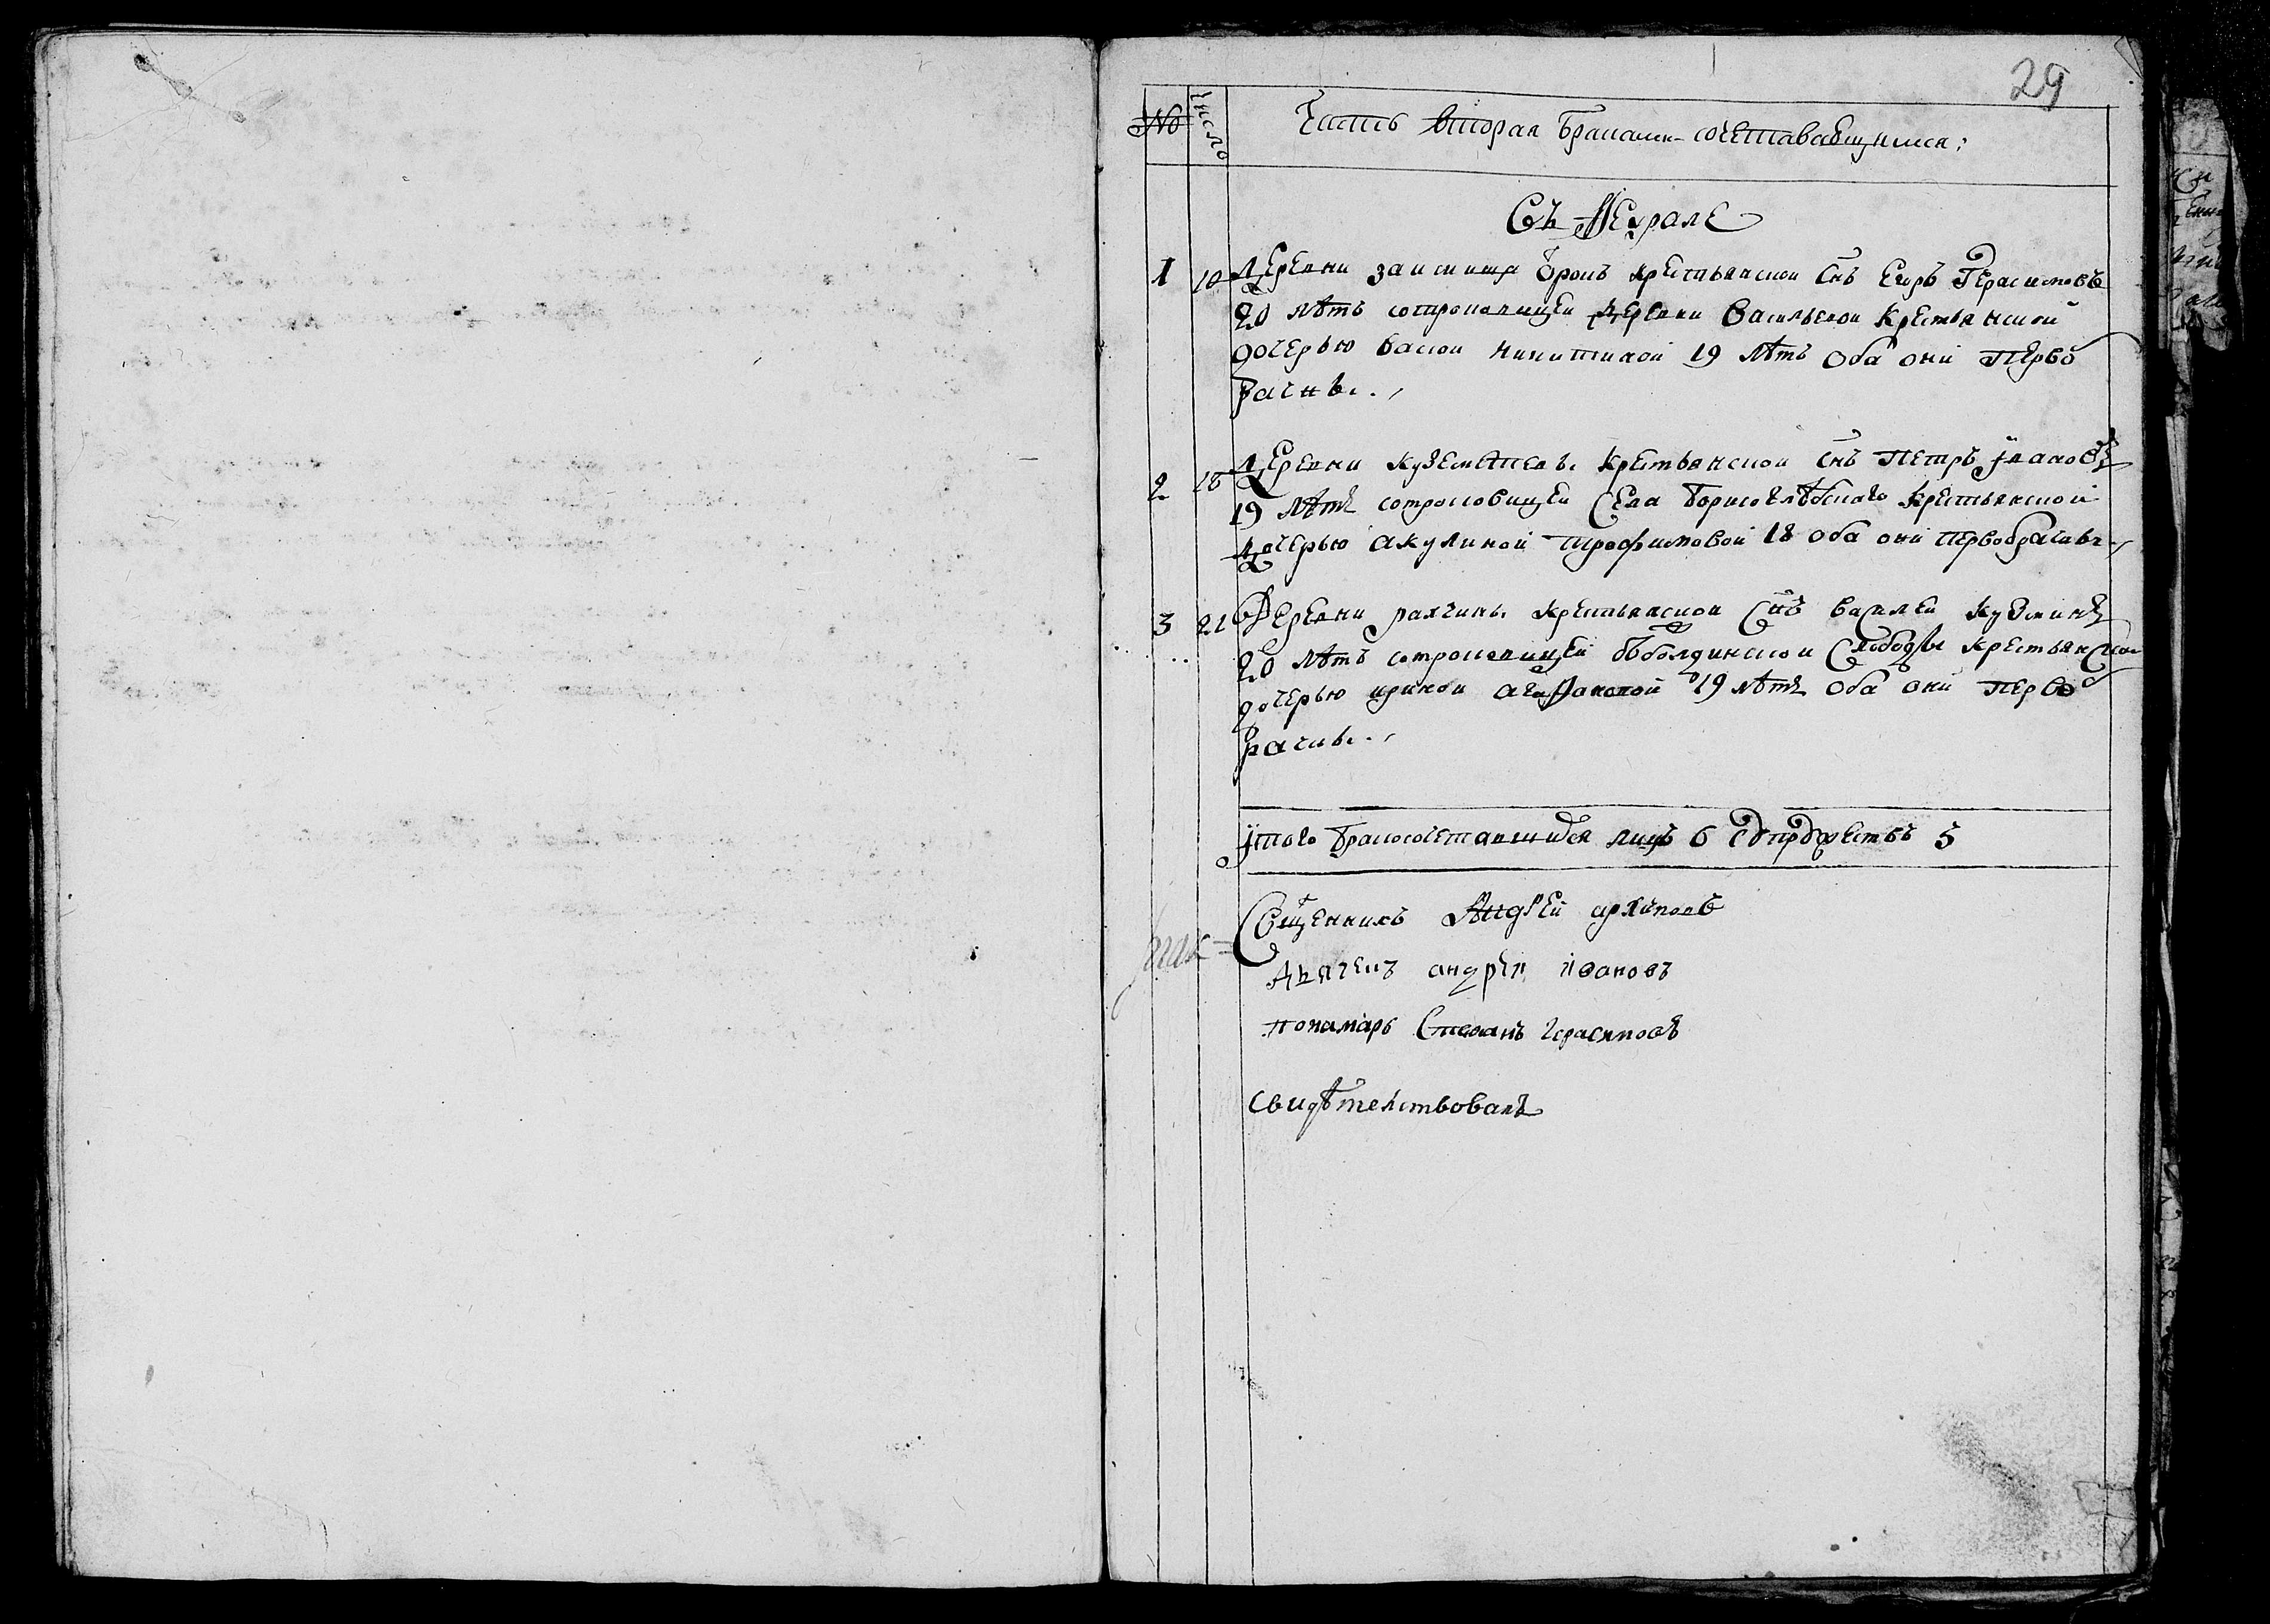 29
№ число Часть вторая бракомъ сочетавающимся:
Съ Феврале
1 10 Деревни заисища крестьянской снъ Егоръ Герасимовъ
20 лѣтъ сотроковицеи деревни Васильевой Крестьянской
дочерью васои никитиной 19 лѣтъ оба они перво
рачны.
2 18 Деревни кузематовъ крестьянской снъ Петръ Ївановъ
19 лѣтъ сотроковицеи села борисоглѣбскаго крестьянской
дочерью акулиной трофимовой 18 оба они первобрачны
3 21 Деревни рахчины крестьянской снъ василеи кузминъ
20 лѣтъ сотроковицеи болдинскои слободы крестьянской
дочерью ириной агафоновой 19 лѣтъ оба они перво
рачны.
Їтого бракосочетавшихся лицъ 6 супружествъ 3
Свщенникъ Андрей архиповъ
дьячекъ андреи ивановъ
понамарь Степанъ герасимовъ
свидѣтелствовалъ